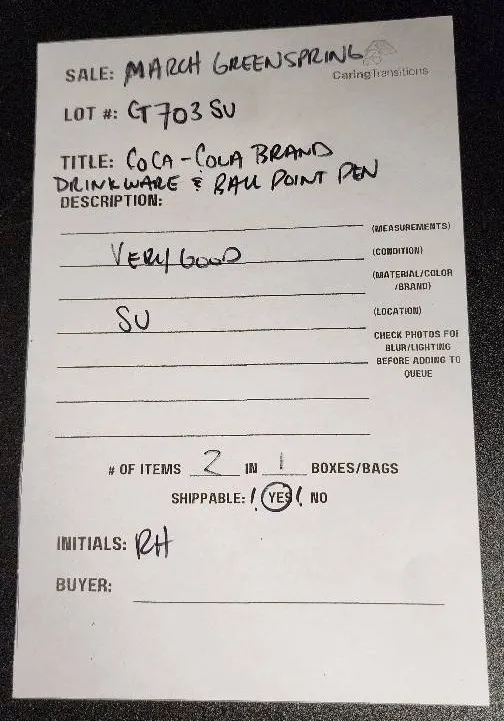 SALE: MARCH GREENSPRING
CaringTransitions
LOT #: GT703 SU
TITLE: COCA-COLA BRAND
DRINKWARE & BALL POINT PEN
DESCRIPTION:
(MEASUREMENTS)
VERY GOOD (CONDITION)
(MATERIAL/COLOR
/BRAND)
SU (LOCATION)
CHECK PHOTOS FOR
BLUR/LIGHTING
BEFORE ADDING TO
QUEUE
# OF ITEMS 2 IN 1 BOXES/BAGS
SHIPPABLE: YES NO
INITIALS: RH
BUYER: